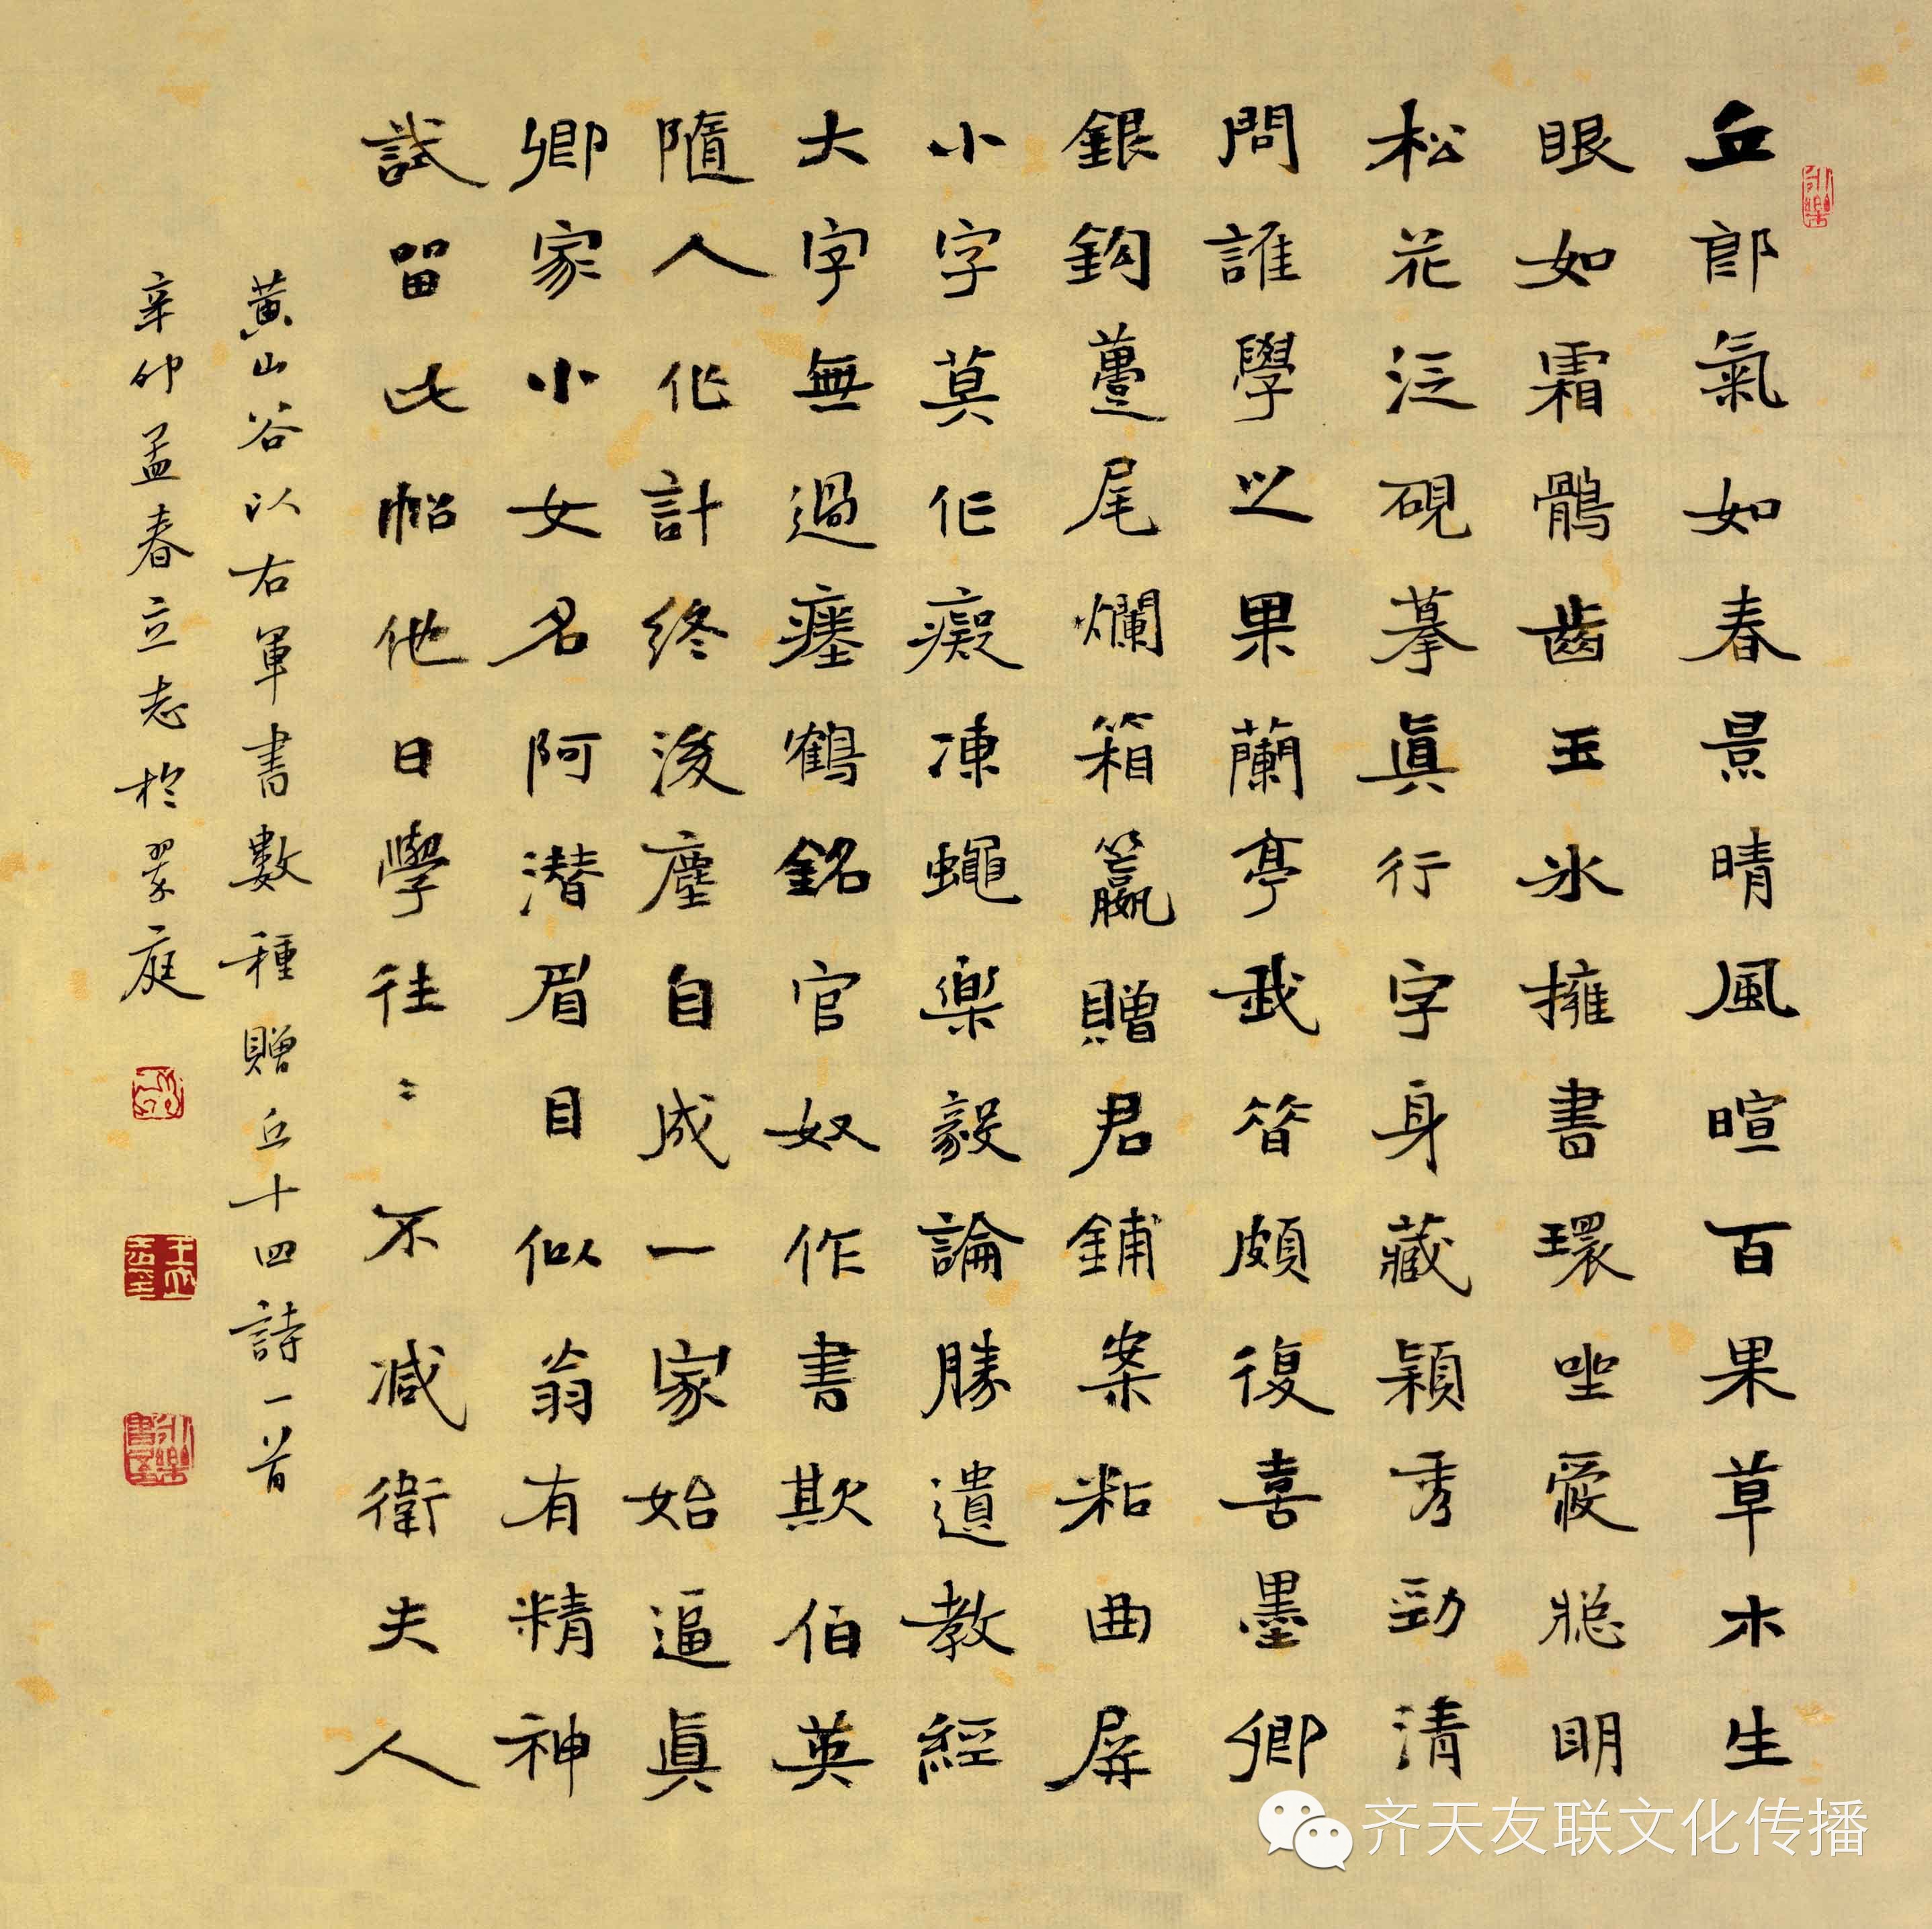 丘郎氣如春景晴風暄百果草木生
眼如霜鶻齒玉冰擁書環坐愛聡明
松花泛硯摹真行字身藏穎秀勁清
問誰學之果蘭亭我昔頗復喜墨卿
銀鈎蠆尾爛箱籯贈君鋪案粘曲屏
小字莫作癡凍蠅樂毅論勝遺教經
大字無過瘞鶴銘官奴作書欺伯英
隨人作計終後塵自成一家始逼真
卿家小女名阿潛眉目似翁有精神
試留此帖他日學往〻不減衛夫人
黃山谷以右軍書數種贈丘十四詩一首
辛卯孟春立志於翠庭
齐天友联文化传播